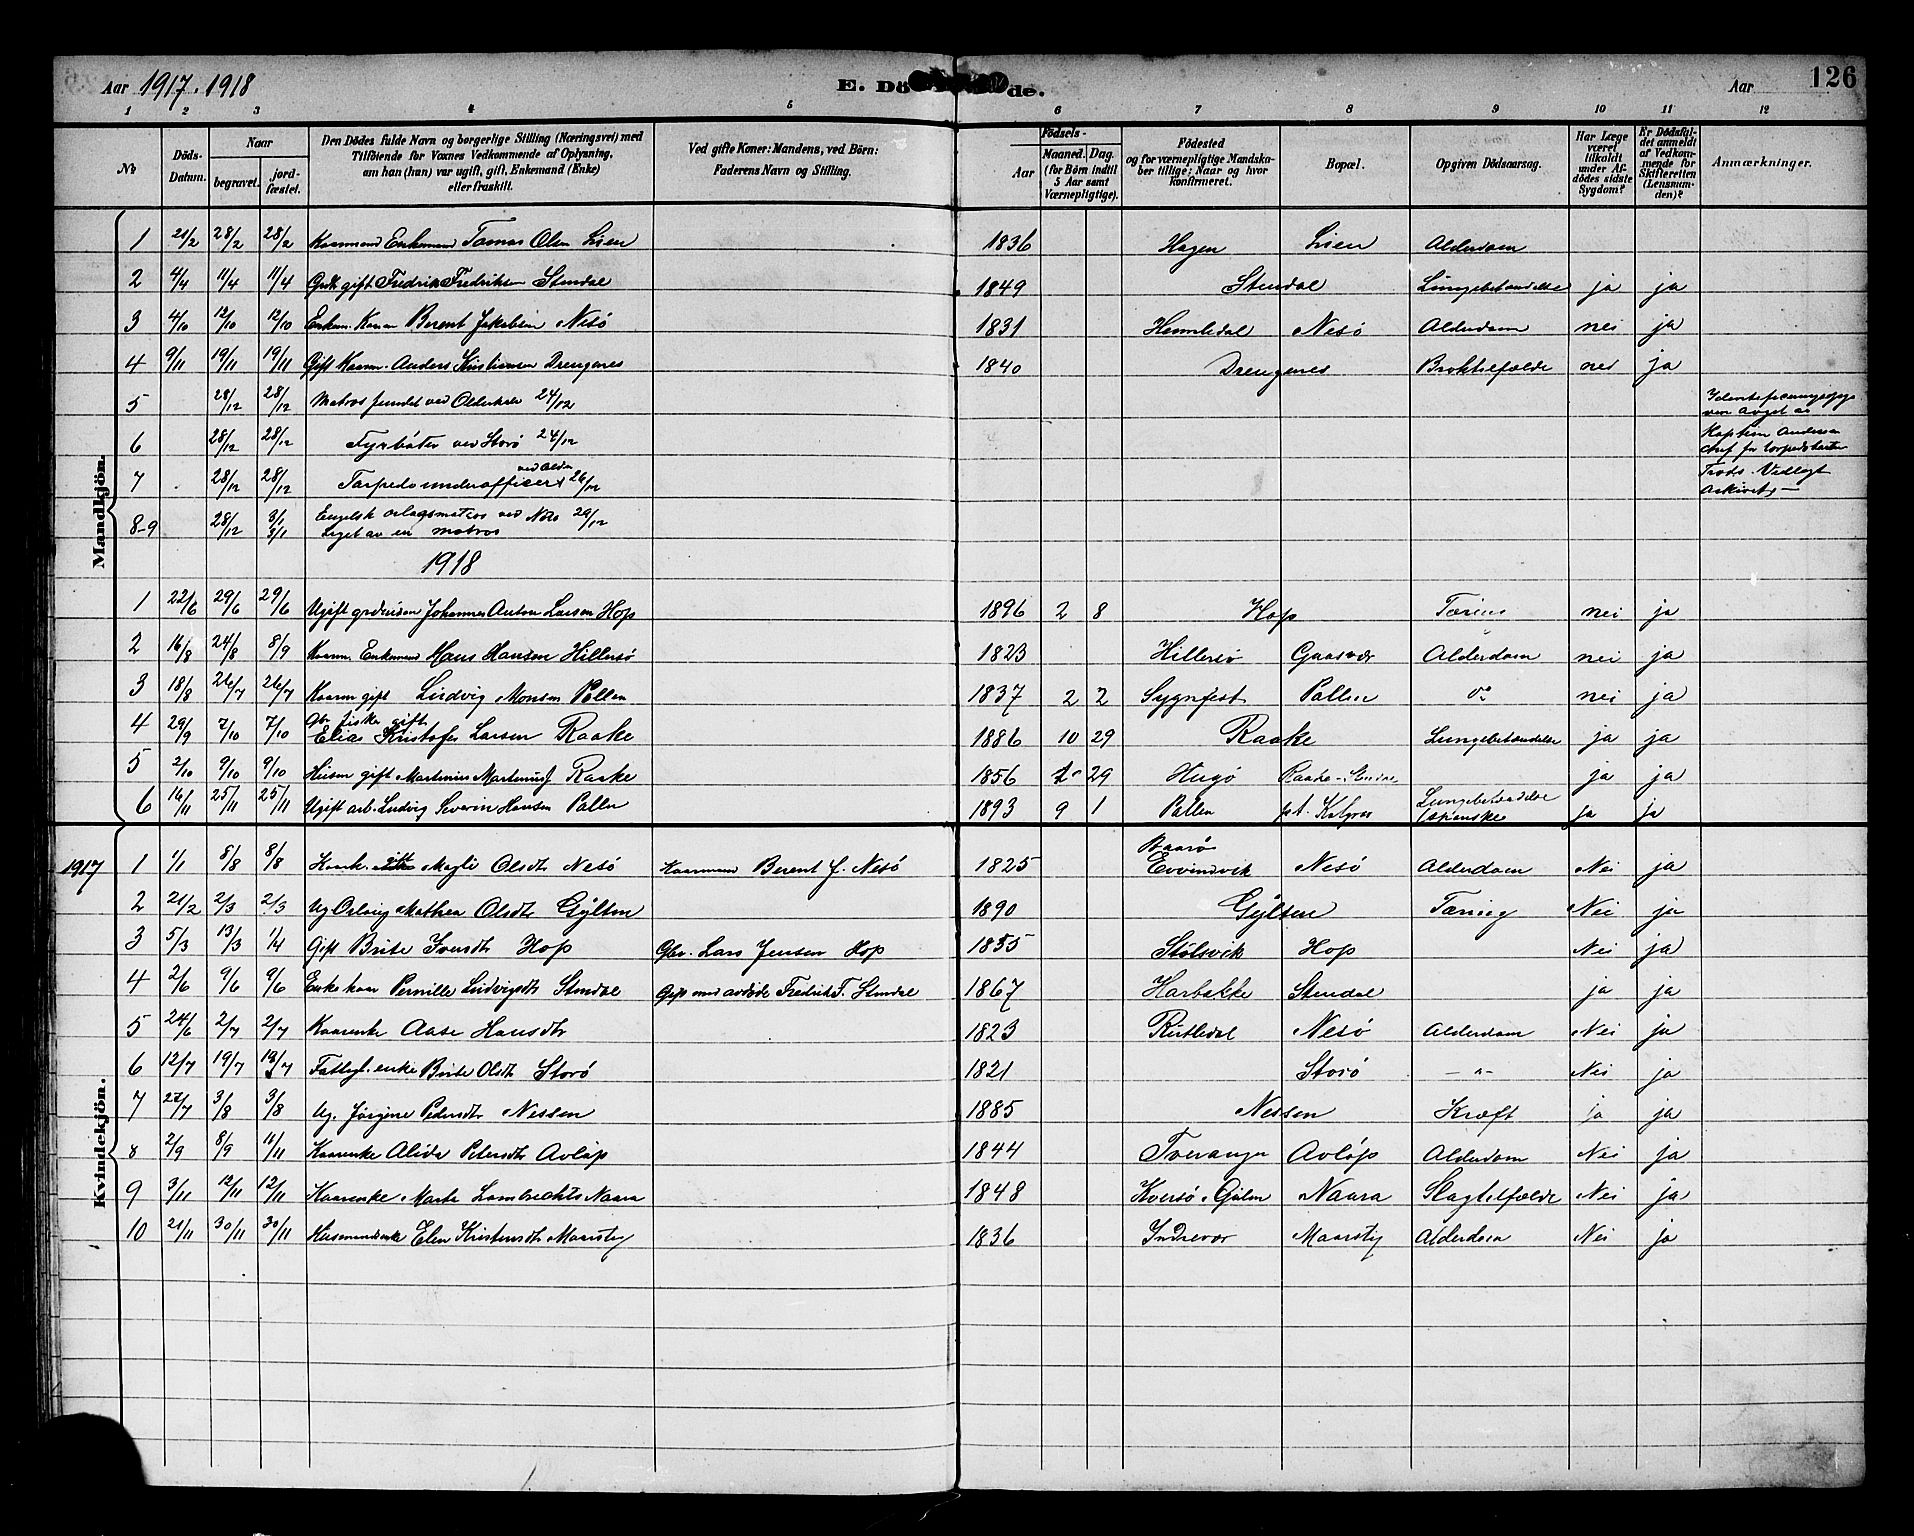 Aar 1917. 1918 E. Dö de. Aar 126
1 2 3 4 5 6 7 8 9 10 11 12
No Döds-Datum. Naar begravet. jordfæstet. Den Dödes fulde Navn og borgerlige Stilling (Næringsvei) med Tilföiende for Voxnes Vedkommende af Oplysning, om han (hun) var ugift, gift, Enkemand (Enke) eller fraskilt. Ved gifte Koner: Mandens, ved Börn: Faderens Navn og Stilling. Födsels- Aar Maaned. Dag. (for Börn indtil 5 Aar samt Værnepligtige). Födested og for værnepligtige Mandskaber tillige: Naar og hvor Konfirmeret. Bopæl. Opgiven Dödsaarsag. Har Læge været tilkaldt under Afdödes sidste Sygdom? Er Dödsfaldet anmeldt af Vedkommende for Skifteretten (Lensmanden)? Anmærkninger.
Mandkjön.
1 21/2 28/2 28/2 Kaarmand Enkemand Tomas Olsen Lien 1836 Hagen Lien Alderdom
2 4/4 11/4 11/4 gift Fredrik Fredriksen Stendal 1849 Stendal Lungebetændelse ja ja
3 4/10 12/10 12/10 Enkem. Berent Jakobsen Nesö 1831 Nesö Alderdom nei ja
4 9/11 19/11 19/11 Gift Kaarm. Anders Kristiansen Drengenes 1840 Drengenes nei ja
5 28/12 28/12 Matros fundet ved 24/12
6 28/12 28/12 Fyrböter ved Storö 24/12
7 28/12 28/12 Torpedounderofficer ved Alden 26/12
Kaptein Andersen
8-9 28/12 3/1 3/1 Engelsk orlogsmatros ved 29/12
Liget av en matros
1918
1 22/6 29/6 29/6 Ugift Johannes Anton Larsen Hop 1896 2 8 Hop nei ja
2 16/8 24/8 8/9 Kaarm. Enkemand Hans Hansen Hillersö 1823 Hillersö Gaasvær Alderdom nei ja
3 18/8 26/7 26/7 Kaarm gift Ludvig Monsen Pollen 1837 2 2 Sygnfest Pollen do nei ja
4 29/9 7/10 7/10 Gbr fisker gift Elias Kristofer Larsen Raake 1886 10 29 Raake Lungebetændelse ja ja
5 2/10 9/10 9/10 Husm gift Martinius Raake 1856 29 ja ja
6 16/11 25/11 25/11 Ugift arb. Ludvig Severin Hansen Pollen 1893 9 1 Pollen Lungebetændelse (spanske ja ja
Kvindekjön.
1917 1 1/1 8/8 8/8 Magli Olsdtr Nesö Kaarmand Berent J. Nesö 1825 Evindvik Nesö Alderdom Nei ja
2 21/2 2/3 2/3 Ug Oslaug Mathea Olsdtr Gylten 1890 Gylten Tæring Nei ja
3 5/3 13/3 1/4 Gift Brite Hop Gbr. Lars Jensen Hop 1855 Stölsvik Hop Nei ja
4 2/6 9/6 9/6 Enke kaar Pernille Ludvigsdtr Stendal Gift med avdöde Fredrik F. Stendal 1867 Harbakke Stendal ja ja
5 24/6 2/7 2/7 Kaarenke Aase Hansdtr 1823 Rutledal Nesö Alderdom Nei ja
6 12/7 19/7 19/7 Fattigl. enke Brite Olsdtr Storö 1821 Storö — " — Nei ja
7 22/7 3/8 3/8 Ug. Jörgine Pedersdtr Nessen 1885 Nessen Kræft ja ja
8 2/9 8/9 11/11 Kaarenke Alida Petersdtr Avlöp 1844 Tveranger Avlöp Alderdom Nei ja
9 3/11 12/11 12/11 Kaarenke Marte Lambrechts Naara 1848 Kversö i Gulen Naara Slagtilfælde Nei ja
10 21/11 30/11 30/11 Husmandsenke Elen Kristensdtr Maarsty 1836 Indrevær Maarsty Alderdom Nei ja